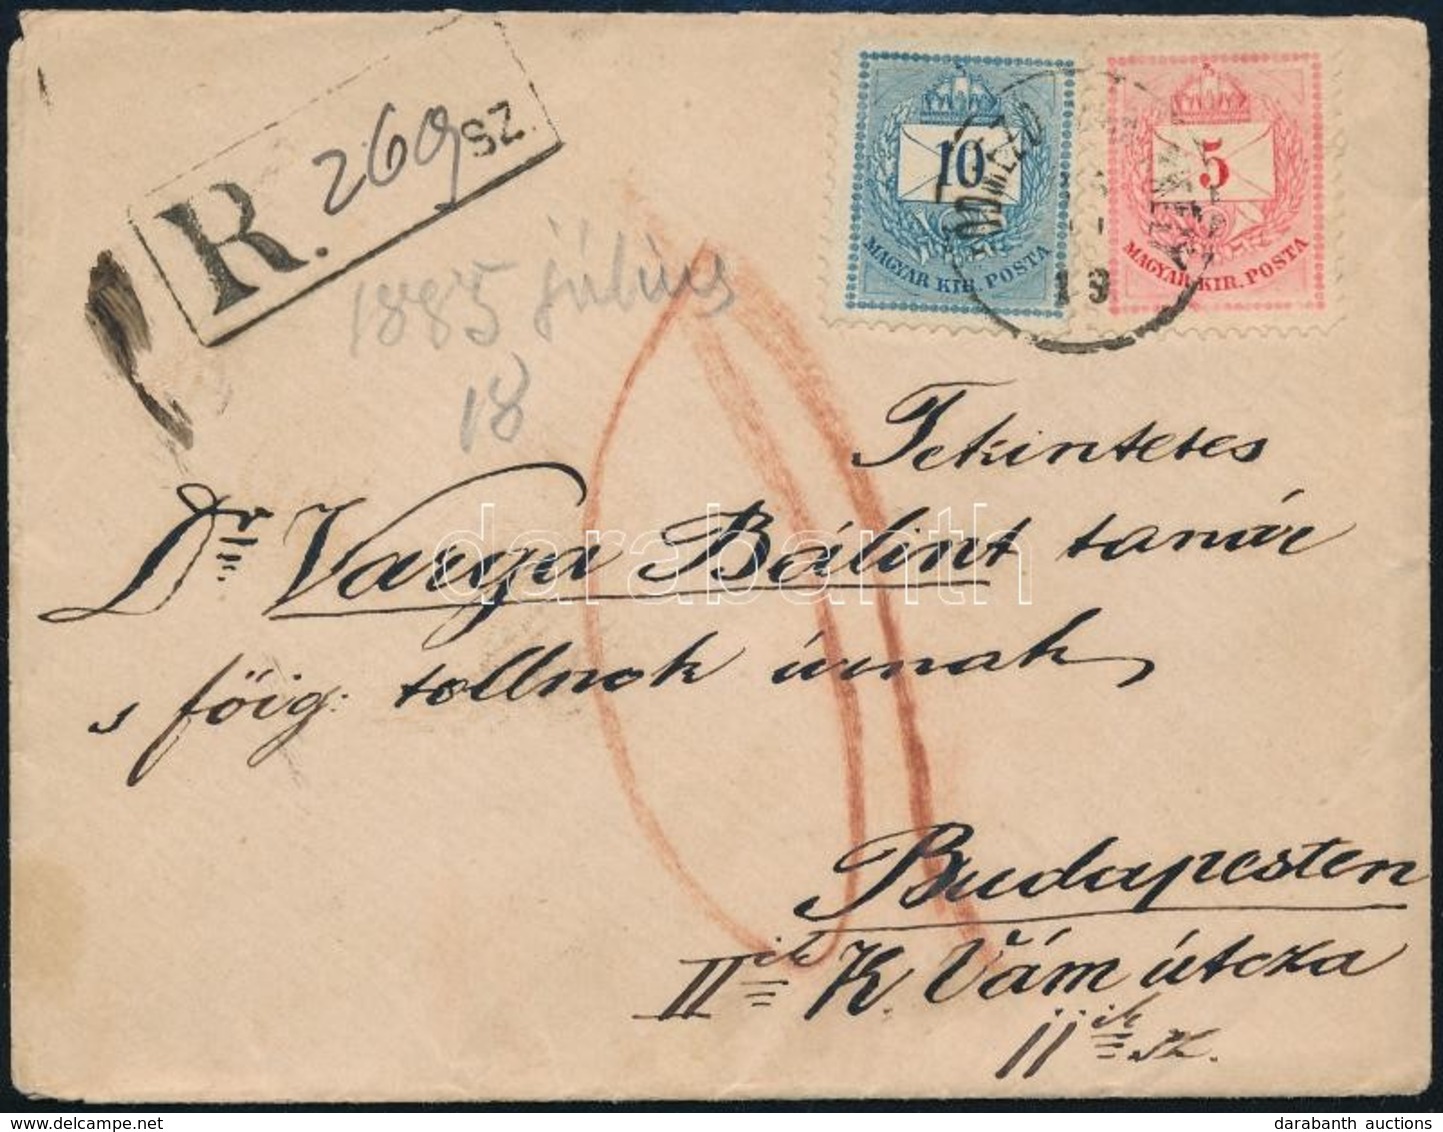 R. 269 SZ.
1885 július
18
10
MAGYAR KIR. POSTA
5
MAGYAR KIR. POSTA
19
Tekintetes
Dr Varga Bálint tanár
s főig: tollnok úrnak
Budapesten
IIik K. Vám útcza
11ik sz.
darabanth
darabanth auctions